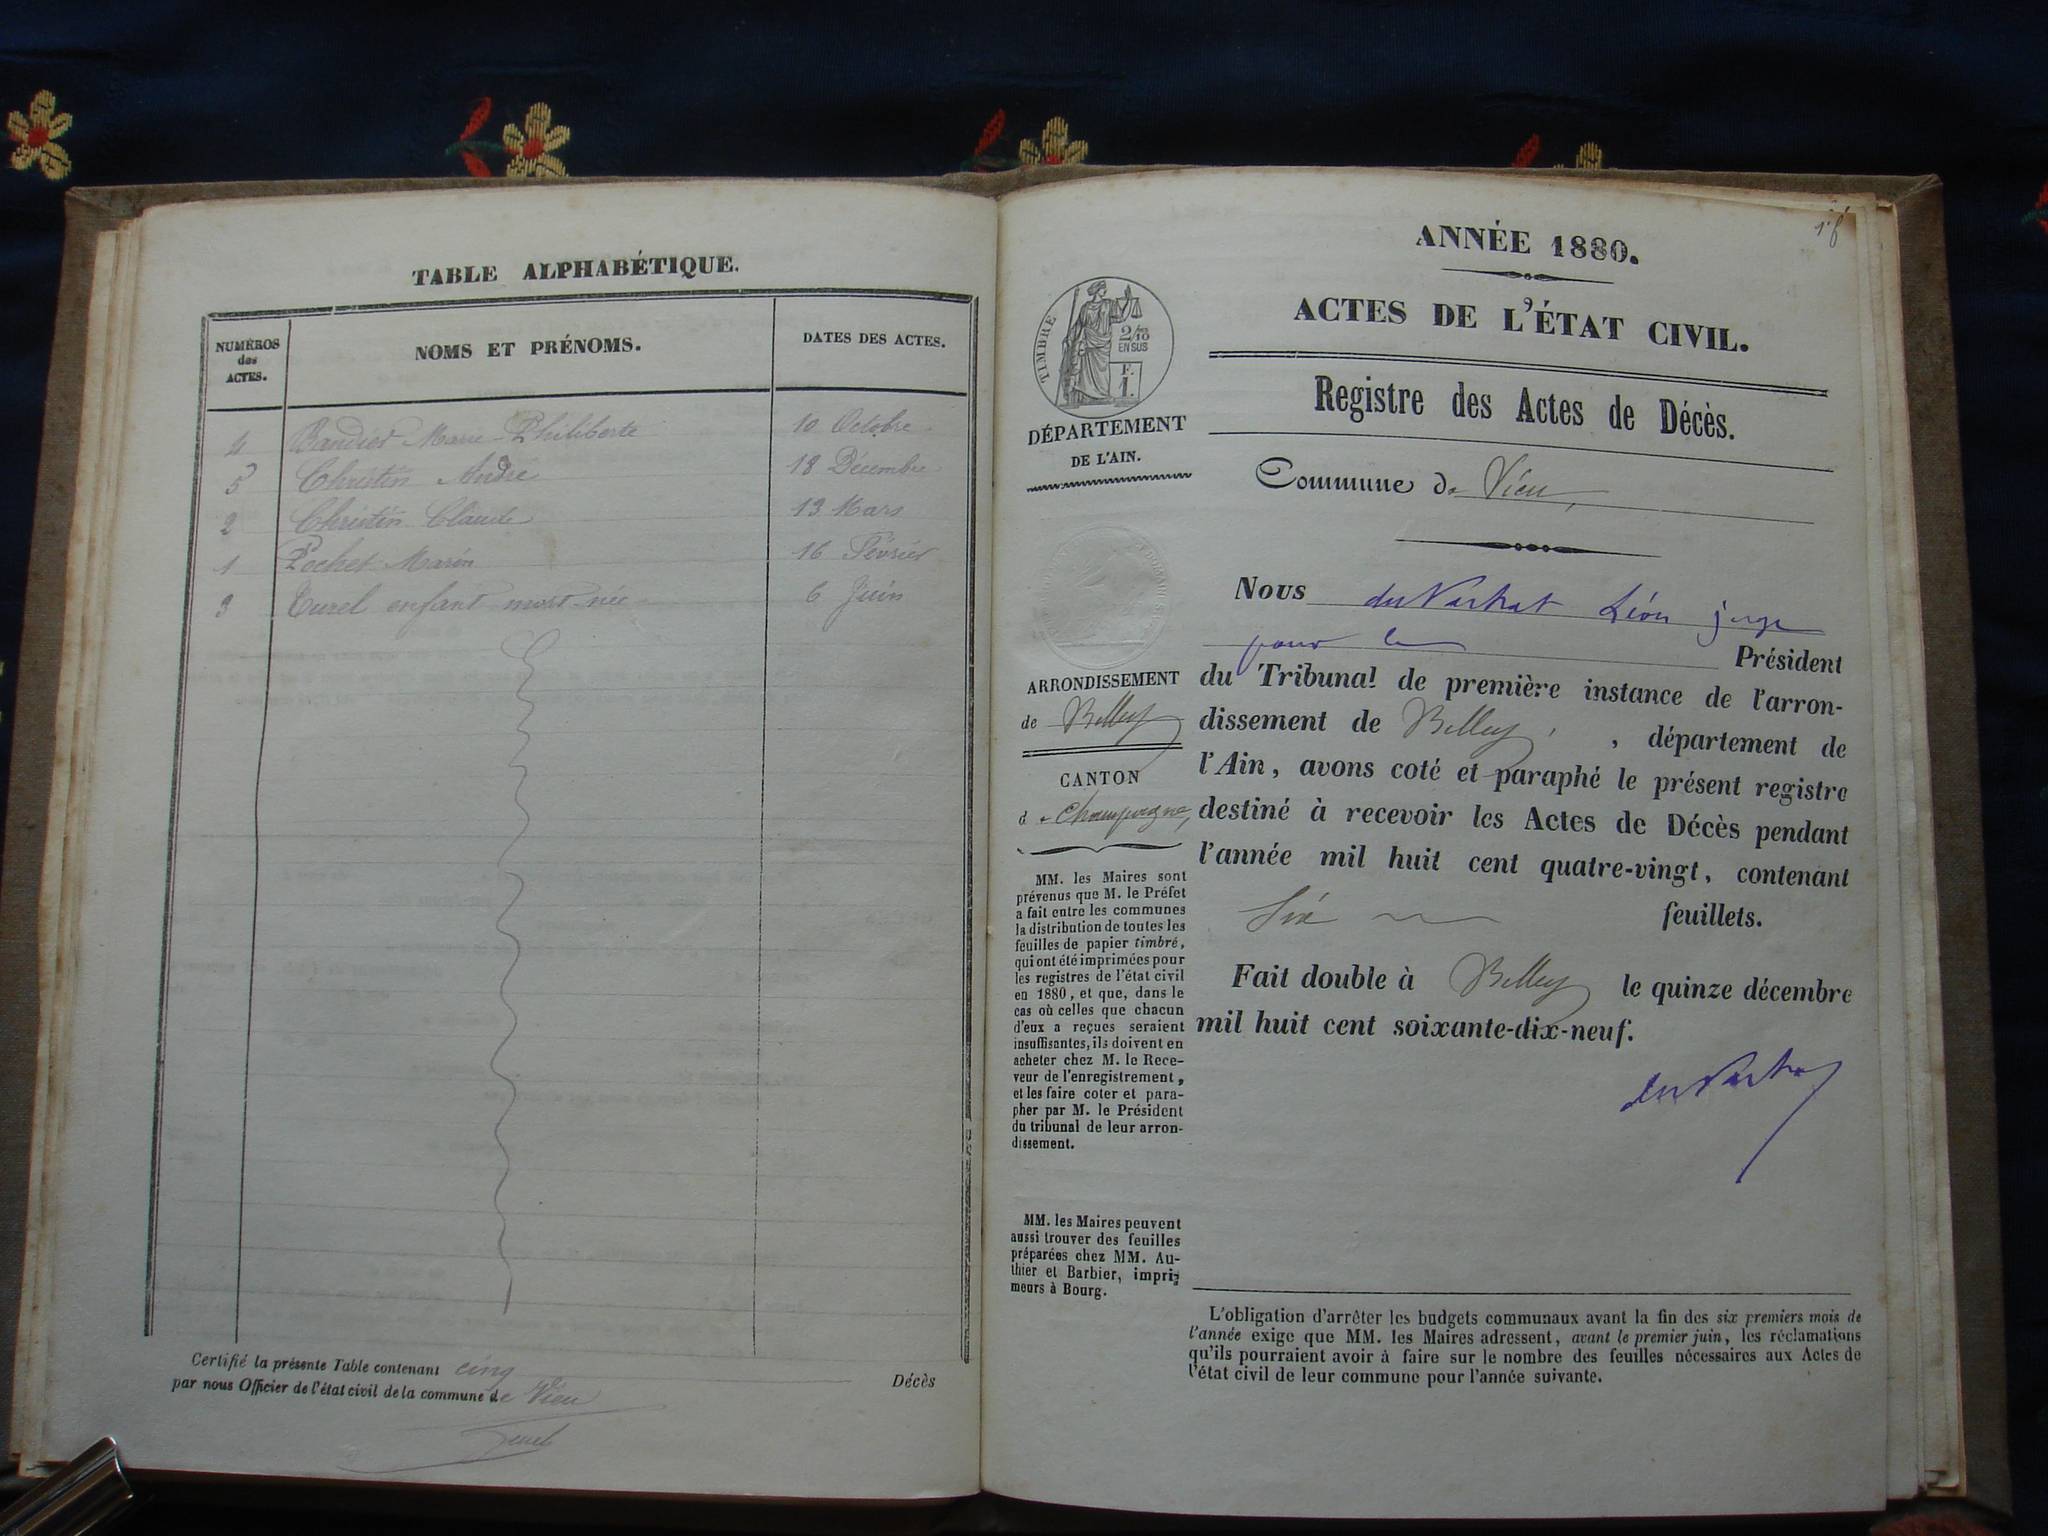 TABLE ALPHABÉTIQUE.
NUMÉROS des ACTES.
NOMS ET PRÉNOMS.
DATES DES ACTES.
4 Marie-Philiberte 10 Octobre
5 Christin André 18 Décembre
2 Christin Claude 13 Mars
1 Pochet Marin 16 Février
3 Turel enfant mort-née 6 Juin
Certifié la présente Table contenant cinq Décès
par nous Officier de l'état civil de la commune de Vieu
1er f
ANNÉE 1880.
ACTES DE L'ÉTAT CIVIL.
Registre des Actes de Décès.
Commune de Vieu,
TIMBRE
2/10
EN SUS
F.
1.
DÉPARTEMENT
DE L'AIN.
ARRONDISSEMENT
de Belley
CANTON
de Champagne,
MM. les Maires sont
prévenus que M. le Préfet
a fait entre les communes
la distribution de toutes les
feuilles de papier timbré,
qui ont été imprimées pour
les registres de l'état civil
en 1880, et que, dans le
cas où celles que chacun
d'eux a reçues seraient
insuffisantes, ils doivent en
acheter chez M. le Rece-
veur de l'enregistrement,
et les faire coter et para-
pher par M. le Président
du tribunal de leur arron-
dissement.
MM. les Maires peuvent
aussi trouver des feuilles
préparées chez MM. Au-
thier et Barbier, impri-
meurs à Bourg.
Nous Léon juge
pour le Président
du Tribunal de première instance de l'arron-
dissement de Belley, , département de
l'Ain, avons coté et paraphé le présent registre
destiné à recevoir les Actes de Décès pendant
l'année mil huit cent quatre-vingt, contenant
six feuillets.
Fait double à Belley le quinze décembre
mil huit cent soixante-dix-neuf.
L'obligation d'arrêter les budgets communaux avant la fin des six premiers mois de
l'année exige que MM. les Maires adressent, avant le premier juin, les réclamations
qu'ils pourraient avoir à faire sur le nombre des feuilles nécessaires aux Actes de
l'état civil de leur commune pour l'année suivante.